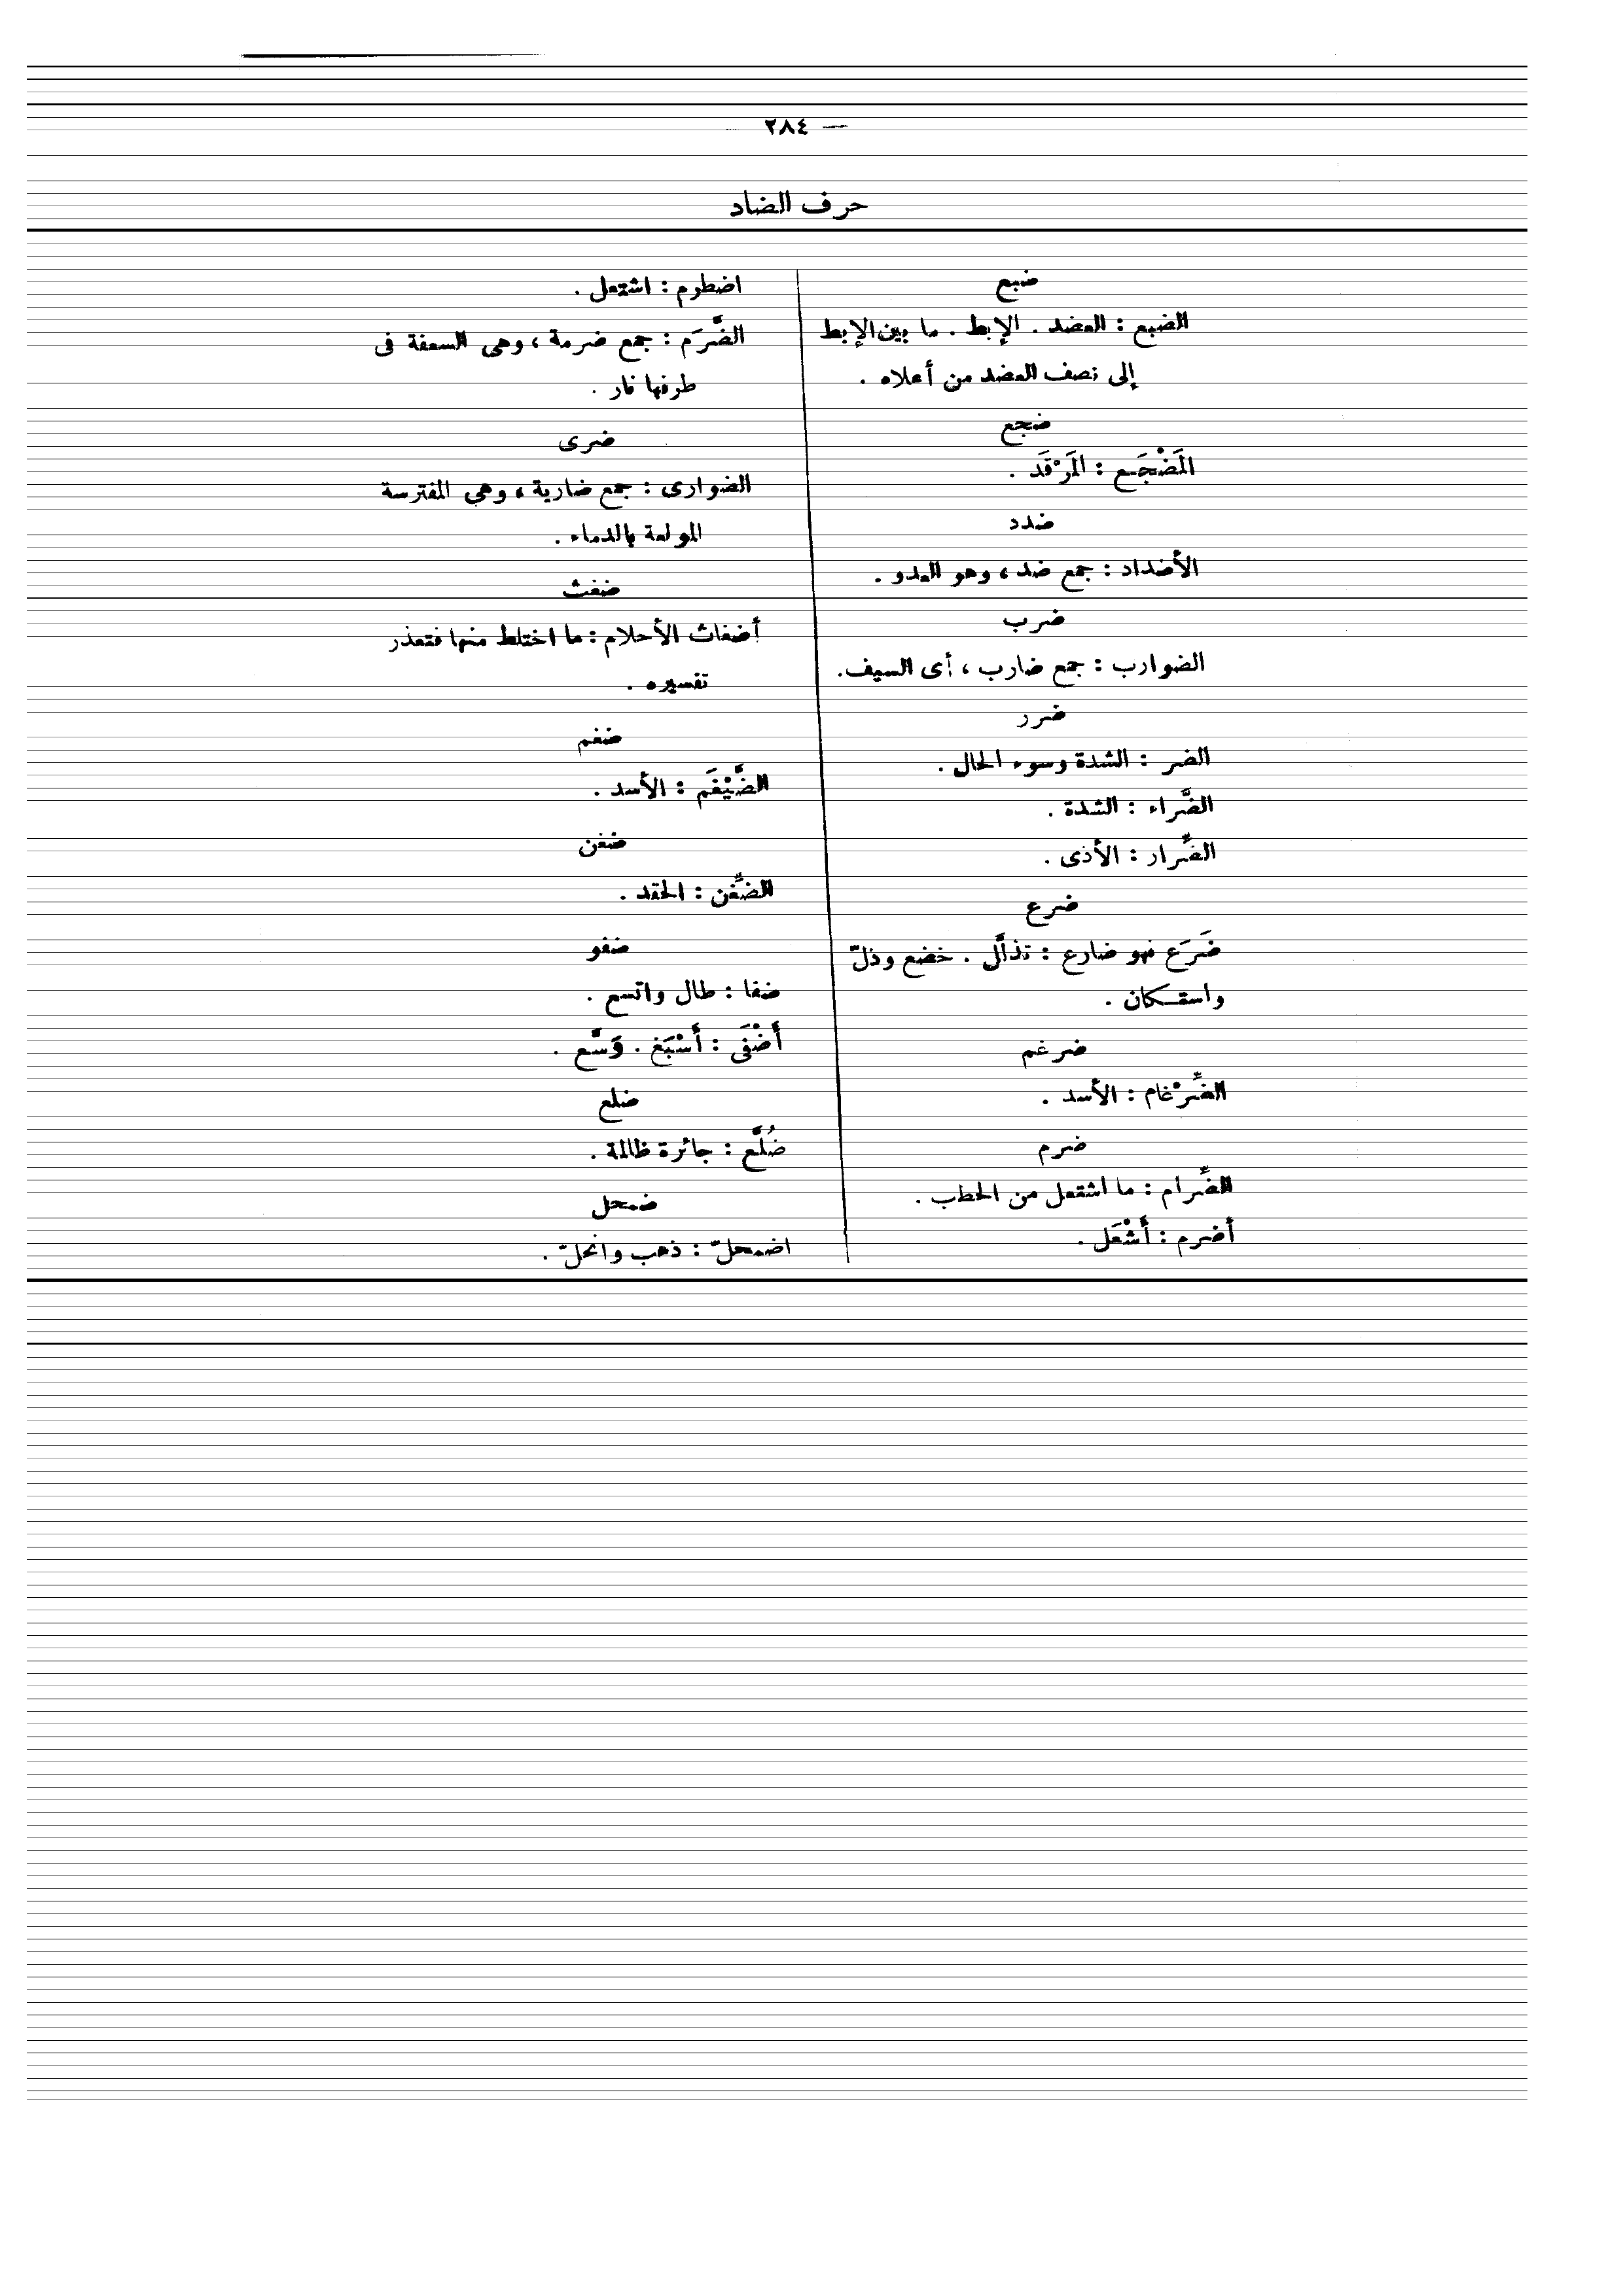 — ٢٨٤ —
حرف الضاد
ضبع
الضبع : العضد . الإبط . ما بين الإبط
إلى نصف العضد من أعلاه .
ضجع
المَضْجَع : المَرْقَد .
ضدد
الأضداد : جمع ضد ، وهو العدو .
ضرب
الضوارب : جمع ضارب ، أى السيف .
ضرر
الضر : الشدة وسوء الحال .
الضَّراء : الشدة .
الضِّرار : الأذى .
ضرع
ضَرَع فهو ضارع : تذلَّل . خضع وذلّ
واستكان .
ضرغم
الضِّرْغام : الأسد .
ضرم
الضِّرام : ما اشتعل من الحطب .
أضرم : أَشْعَل .
اضطرم : اشتعل .
الضَّرَم : جمع ضرمة ، وهى السعفة فى
طرفها نار .
ضرى
الضوارى : جمع ضارية ، وهى المفترسة
المولعة بالدماء .
ضغث
أضغاث الأحلام : ما اختلط منها فتعذر
تفسيره .
ضغم
الضَّيْغَم : الأسد .
ضغن
الضِّغن : الحقد .
ضفو
ضفا : طال واتسع .
أَضْفَى : أَسْبَغ . وَسَّع .
ضلع
ضُلَّع : جائرة ظالمة .
ضمحل
اضمحلّ : ذهب وانحلّ .